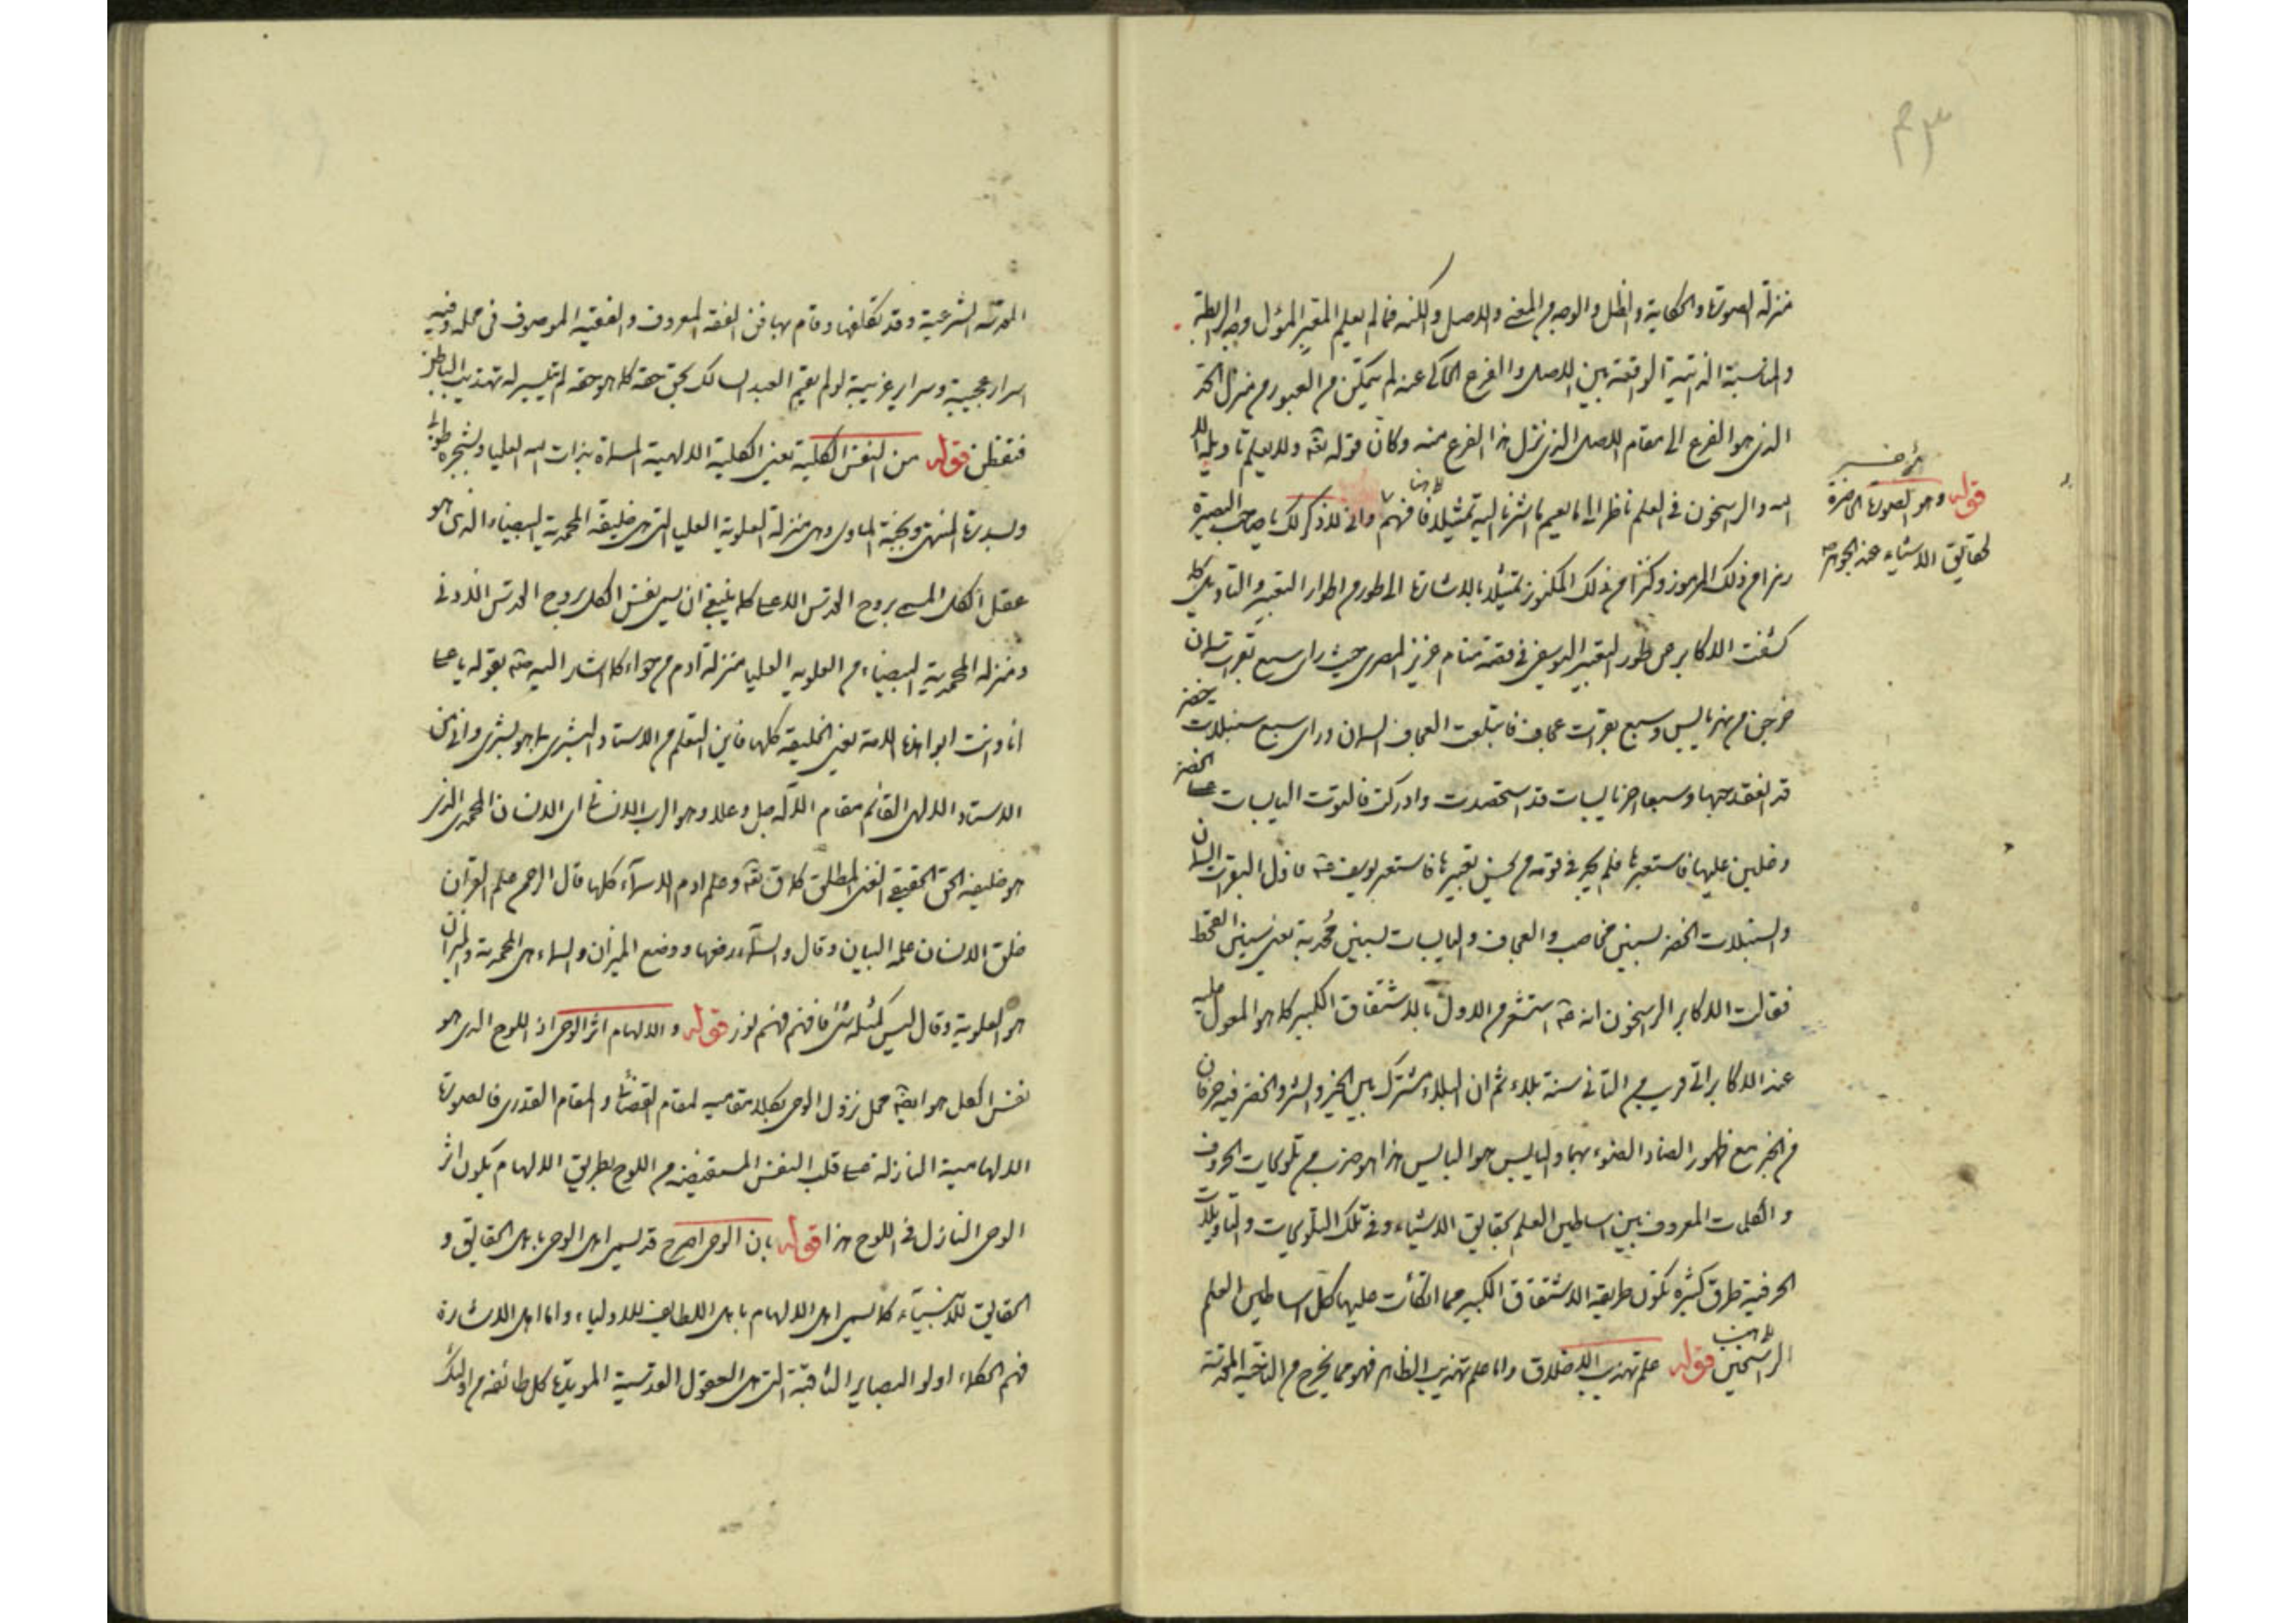 منزلة الصورة والحكاية والظل والوجه من المعنى والاصل والكنه فما لم يعلم المعبر المؤل وجه الرابطة
والمناسبة الذاتية الواقعة بين الاصل والفرع الحاكى عنه لم يتمكن من العبور من منزل
الذى هو الفرع الى مقام الاصل الذى نزل هذا الفرع منه وكان قوله تعه ولا يعلم تاويله الا
الله والراسخون فى العلم ناظر الى ما يعم ما اشرنا اليه تمثيلا فافهم وانى لاذكر لك يا صاحب البصيرة
رمزا من ذلك المرموز وكنزا من ذلك المكنوز تمثيلا بالاشارة الى طور من اطوار التعبير والتاويل كما
كشفت الاكابر عن طور التعبير اليوسفى فى قصة منام عزيز المصرى حيث راى سبع بقرات سمان
خرجن من نهر يابس وسبع بقرات عجاف فابتلعت العجاف السمان وراى سبع سنبلات خضر
قد انعقد حبها وسبعا اخر يابسات قد استحصدت وادركت فالتوت اليابسات على الخضر
وغلبن عليها فاستعبرها فلم يجد فى قومه من يحسن تعبيرها فاستعبر يوسف فاول البقرات السمان
والسنبلات الخضر بسنين مخاصب والعجاف واليابسات بسنين مجدبة يعنى سنين القحط
فقالت الاكابر الراسخون انه استشعر من الاول بالاشتقاق الكبير كما هو المعول عليه
عند الاكابر اتى قريب من الثانى سنة بلاء ثم ان البلاء مشترك بين الخير والشر والخضر فيه حرفان
من الخير مع ظهور الضاد الضوء بهما واليابس هو البايس هذا هو ضرب من تلويحات الحروف
والكلمات المعروف بين اساطين العلم بحقايق الاشياء وفى تلك التلويحات والتاويلات
الحرفية طرق كثيرة تكون طريقة الاشتقاق الكبير مما اتكأت عليها كل اساطين العلم
الراسخين قوله علم تهذيب الاخلاق واما علم تهذيب الظاهر فهو مما يخرج من الناحية
قوله وهو الصورة الحاضرة
لحقايق الاشياء عند الجوهر
المقدسة الشرعية وقد تكفلها وقام بها فن الفقه المعروف والفقيه الموصوف فى محله وفيه
اسرار عجيبة وسراير غريبة لو لم يقم العبد السالك بحق حقه كما هو حقه لم يتيسر له تهذيب الباطن
فتفطن قوله من النفس الكلية يعنى الكلية الالهية المسماة بذات الله العليا وشجرة طوبى
وسدرة المنتهى وبجنة الماوى وهى منزلة العلوية العليا التى هى خليفة المحمدية البيضاء الذى هو
عقل الكل المسمى بروح القدس الاعلى كما ينبغى ان يسمى نفس الكل بروح القدس الادنى
ومنزلة المحمدية البيضاء من العلوية العليا منزلة آدم من حواء كما اشار اليه بقوله يا على
انا وانت ابوا هذه الامة يعنى الخليقة كلها فاين التعلم من الاستاد البشرى بما هو بشرى وانى من
الاستاد الالهى القائم مقام الاله جل وعلا وهو الرب الانسانى اى الانسان المحمدى الذى
هو خليفة الحق الحقيقى الغنى المطلق كما قال تعه وعلم ادم الاسماء كلها قال الرحمن علم القرآن
خلق الانسان علمه البيان وقال والسماء رفعها ووضع الميزان والسماء هى المحمدية والميزان
هو العلوية وقال ليس كمثله شئ فافهم فهم نور قوله والالهام اثر الوحى اذ اللوح الذى هو
نفس الكل هو ايضا محل نزول الوحى بكلا مقاميه المقام القضائى والمقام القدرى فالصورة
الالهامية النازلة على قلب النفس المستفيضة من اللوح بطريق الالهام يكون اثر
الوحى النازل فى اللوح هذا قوله بان الوحى اصرح قد يسمى اهل الوحى باهل الحقايق و
الحقايق للانبياء كما يسمى اهل الالهام باهل اللطايف للاولياء واما اهل الاشارة
فهم الحكماء اولو البصاير الثاقبة التى هى العقول القدسية المويدة كل طائفة من اولئك